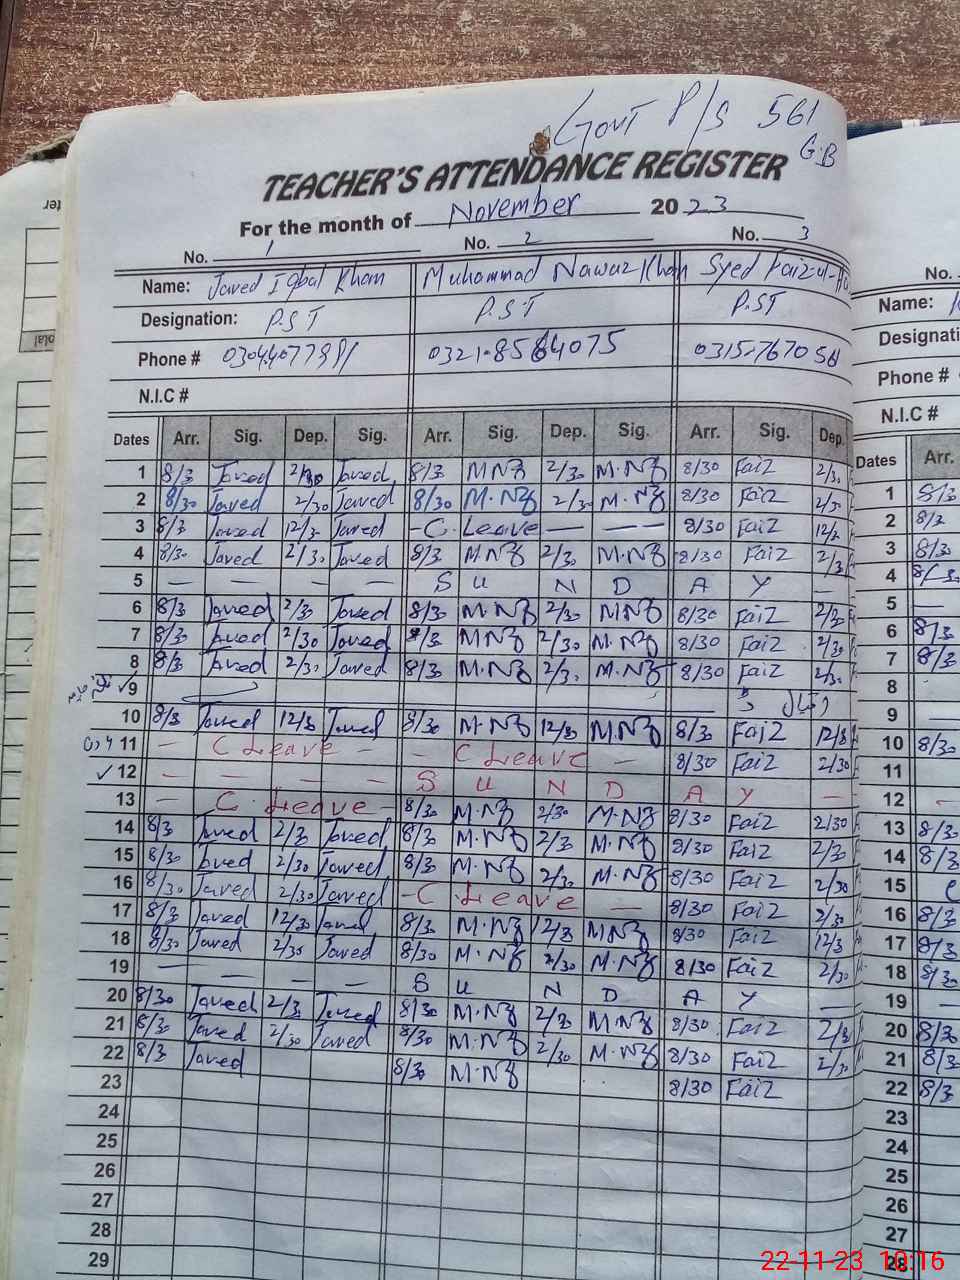 Govt P/S 561
G.B
TEACHER'S ATTENDANCE REGISTER
For the month of November 2023
No. 1 No. 2 No. 3
Name: Javed Iqbal Khan Muhammad Nawaz Khan Syed Faiz-ul-
Designation: P.S.T P.S.T P.ST
Phone # 0321-8564075
N.I.C #
Dates Arr. Sig. Dep. Sig. Arr. Sig. Dep. Sig. Arr. Sig. Dep.
1 8/3 Javed 2/30 Javed 8/3 M.NZ 2/30 M.NZ 8/30 Faiz 2/30
2 8/30 Javed 2/30 Javed 8/30 M.NZ 2/30 M.NZ 8/30 Faiz 2/30
3 8/3 Javed 12/3 Javed - C. Leave — — — 8/30 Faiz 12/3
4 8/30 Javed 2/30 Javed 8/3 M.NZ 2/30 M.NZ 8/30 Faiz 2/3
5 — — - - S U N D A Y —
6 8/3 Javed 2/30 Javed 8/30 M.NZ 2/30 M.NZ 8/30 Faiz 2/30
7 8/3 Javed 2/30 Javed 8/3 M.NZ 2/30 M.NZ 8/30 Faiz 2/30
8 8/3 Javed 2/30 Javed 8/30 M.NZ 2/30 M.NZ 8/30 Faiz 2/30
✓9
10 8/3 Javed 12/3 Javed 8/30 M.NZ 12/30 M.NZ 8/30 Faiz 12/3
11 — C Leave — - C Leave — 8/30 Faiz 2/30
✓12 — — — — S U N D A Y —
13 — C. Leave - 8/30 M.NZ 2/30 M.NZ 8/30 Faiz 2/30
14 8/3 Javed 2/3 Javed 8/30 M.NZ 2/3 M.NZ 8/30 Faiz 2/30
15 8/30 Javed 2/30 Javed 8/3 M.NZ 2/30 M.NZ 8/30 Faiz 2/30
16 8/30 Javed 2/30 Javed - C Leave — 8/30 Faiz 2/30
17 8/3 Javed 12/30 Javed 8/30 M.NZ 12/3 M.NZ 8/30 Faiz 12/3
18 8/30 Javed 2/30 Javed 8/30 M.NZ 2/30 M.NZ 8/30 Faiz 2/30
19 — — — — S U N D A Y —
20 8/30 Javed 2/3 Javed 8/30 M.NZ 2/3 M.NZ 8/30 Faiz 2/3
21 8/30 Javed 2/30 Javed 8/30 M.NZ 2/30 M.NZ 8/30 Faiz 2/30
22 8/3 Javed 8/30 M.NZ 8/30 Faiz
23
24
25
26
27
28
29
No.
Name:
Designati
Phone #
N.I.C #
Dates Arr.
1 8/3
2 8/3
3 8/30
4 8/30
5 —
6 8/3
7 8/30
8
9
10 8/30
11
12 -
13 8/3
14 8/3
15 C
16 8/3
17 8/3
18 8/30
19 —
20 8/30
21 8/3
22 8/3
23
24
25
26
27
28
22-11-23 10:16